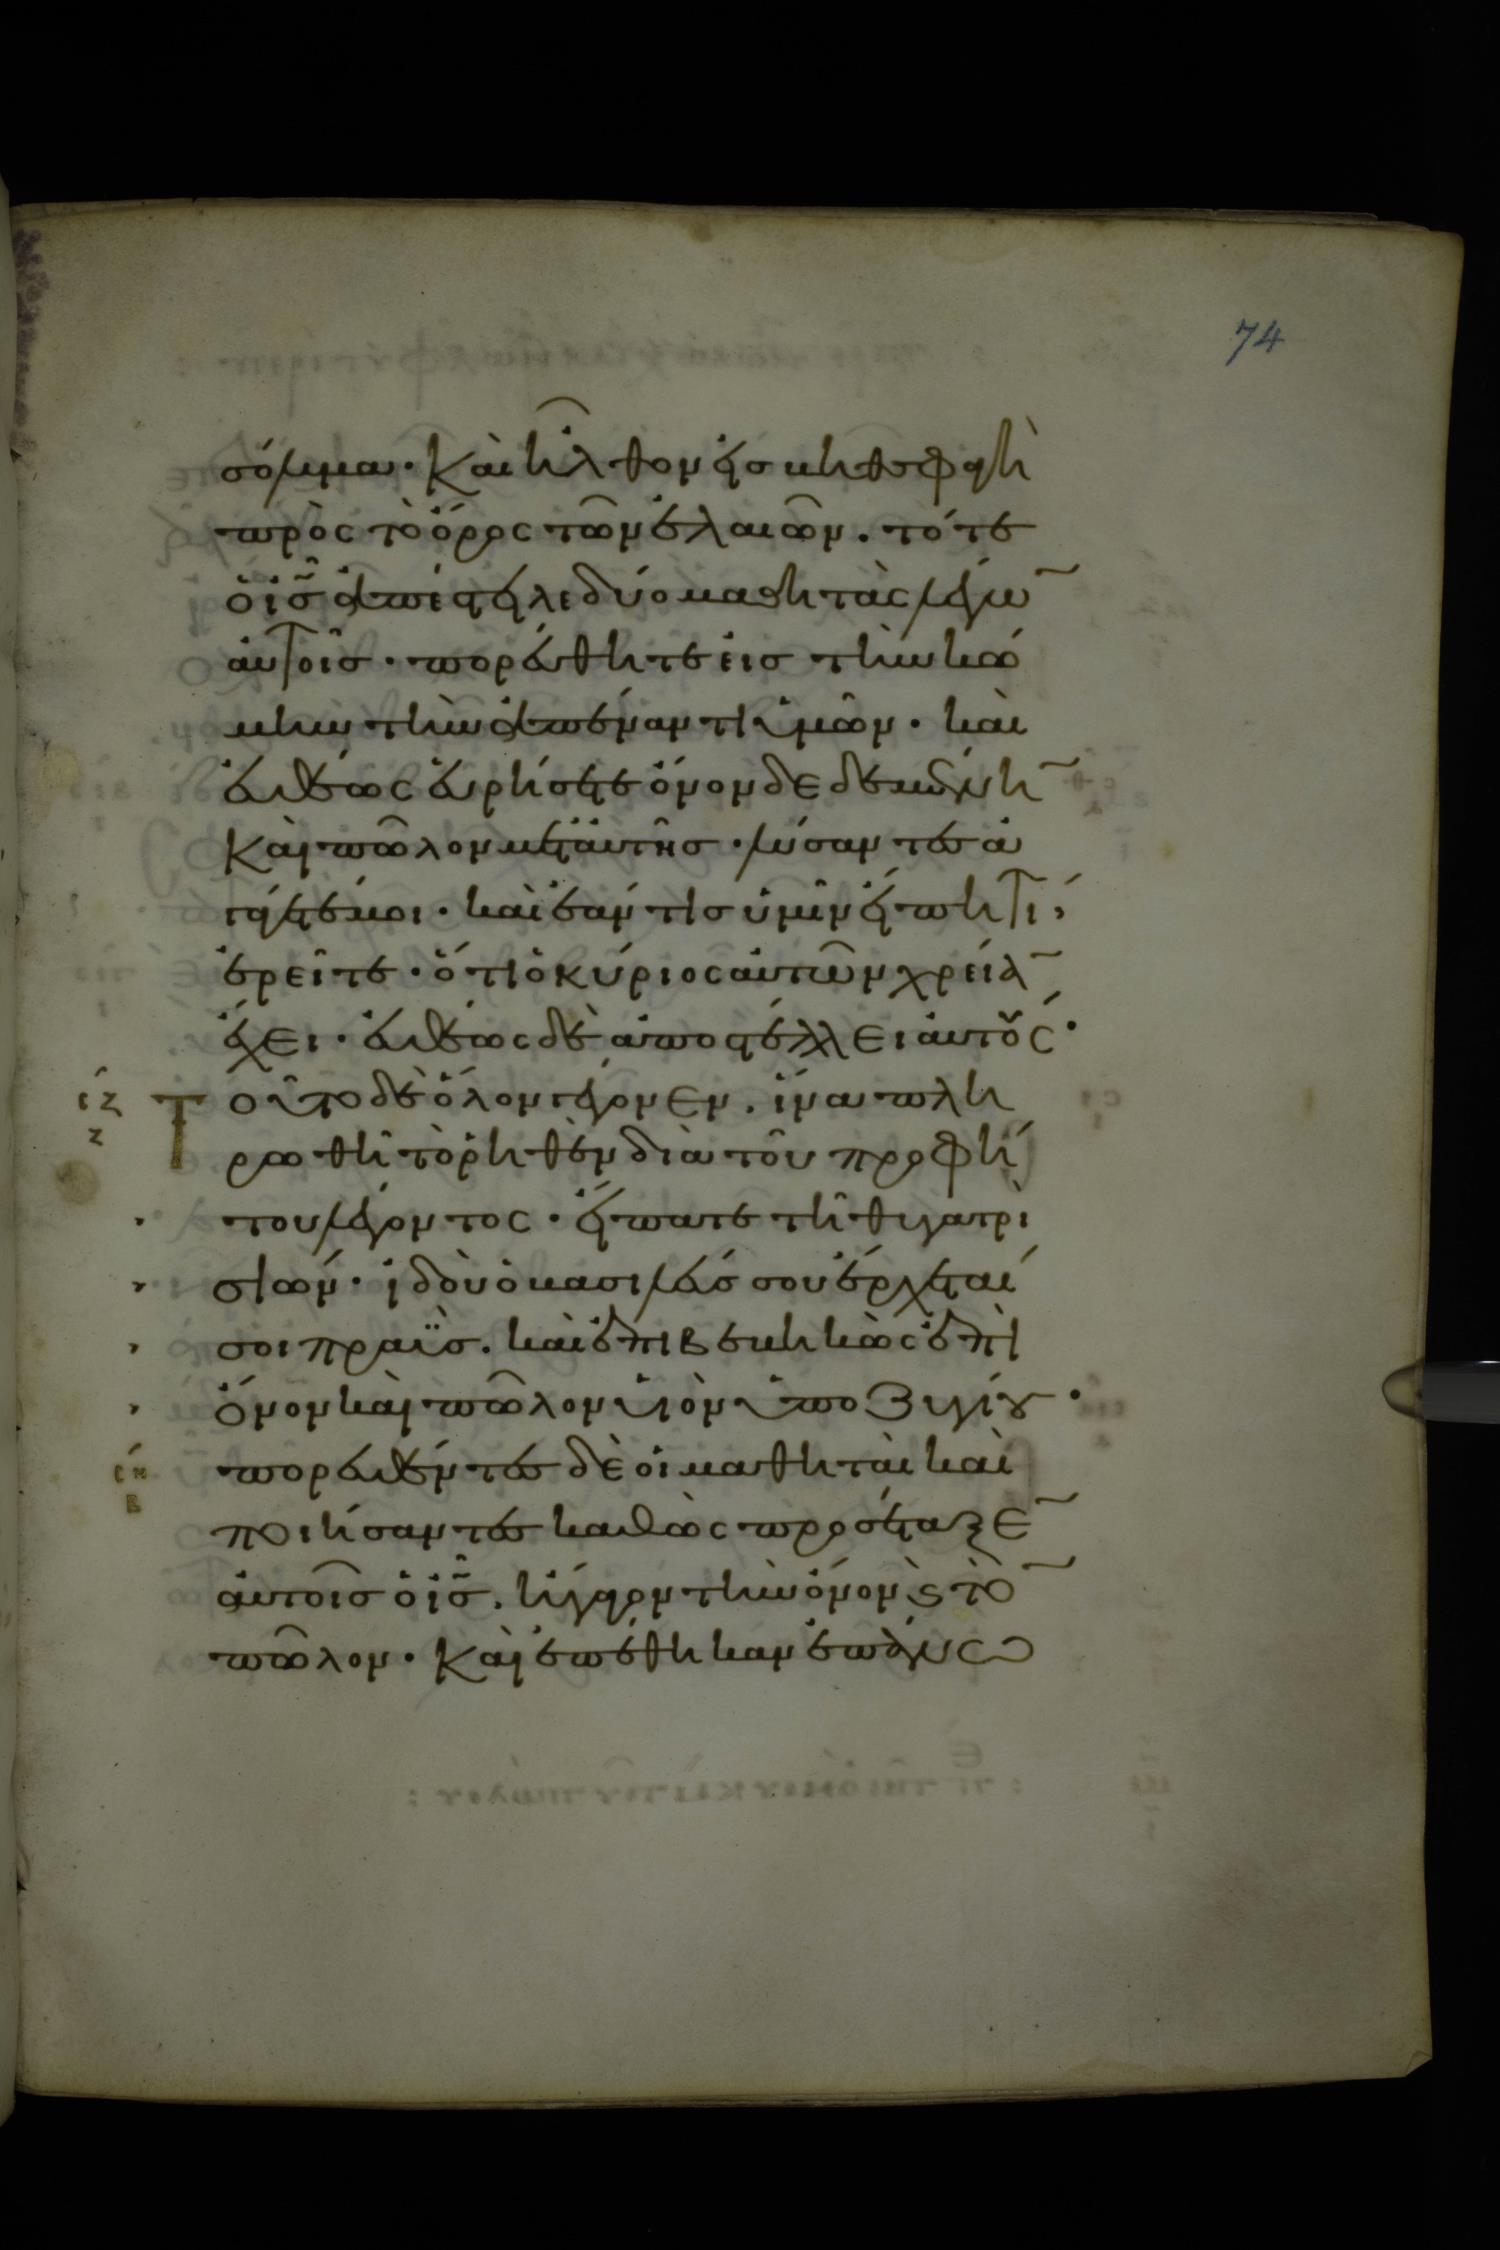 74
σόλυμα· καὶ ἦλθον εἰς βηθσφαγὴ
πρὸς τὸ ὄρος τῶν ἐλαιῶν. τότε
ὁ ις̄ ἀπέστειλε δύο μαθητὰς λέγω̅
αὐτοῖς· πορεύθητε εἰς τὴν κώ
μην τὴν ἀπέναντι ὑμῶν· καὶ
εὐθέως εὑρήσετε ὄνον δεδεμένη̅
καὶ πῶλον μετ' αὐτῆς· λύσαντες ἀ
γάγετέ μοι· καὶ ἐάν τις ὑμῖν εἴπη τί,
ἐρεῖτε· ὅτι ὁ κύριος αὐτῶν χρεία̅
ἔχει· εὐθέως δὲ ἀποστέλλει αὐτούς·
σζ ζ
Τοῦτο δὲ ὅλον γέγονεν. ἵνα πλη
ρωθῆ τὸ ῥηθὲν διὰ τοῦ προφή
του λέγοντος· εἴπατε τῆ θυγατρὶ
σιών· ἰδοὺ ὁ βασιλεύς σου ἔρχεταί
σοι πραΰς. καὶ ἐπιβεβηκὼς ἐπὶ
ὄνον καὶ πῶλον υἱὸν ὑποζυγίου·
ση β
πορευθέντες δὲ οἱ μαθηταὶ καὶ
ποιήσαντες καθὼς προσέταξε̅
αὐτοῖς ὁ ις̄. ἤγαγον τὴν ὄνον ϛ τὸ̅
πῶλον· καὶ ἐπέθηκαν ἐπάνω